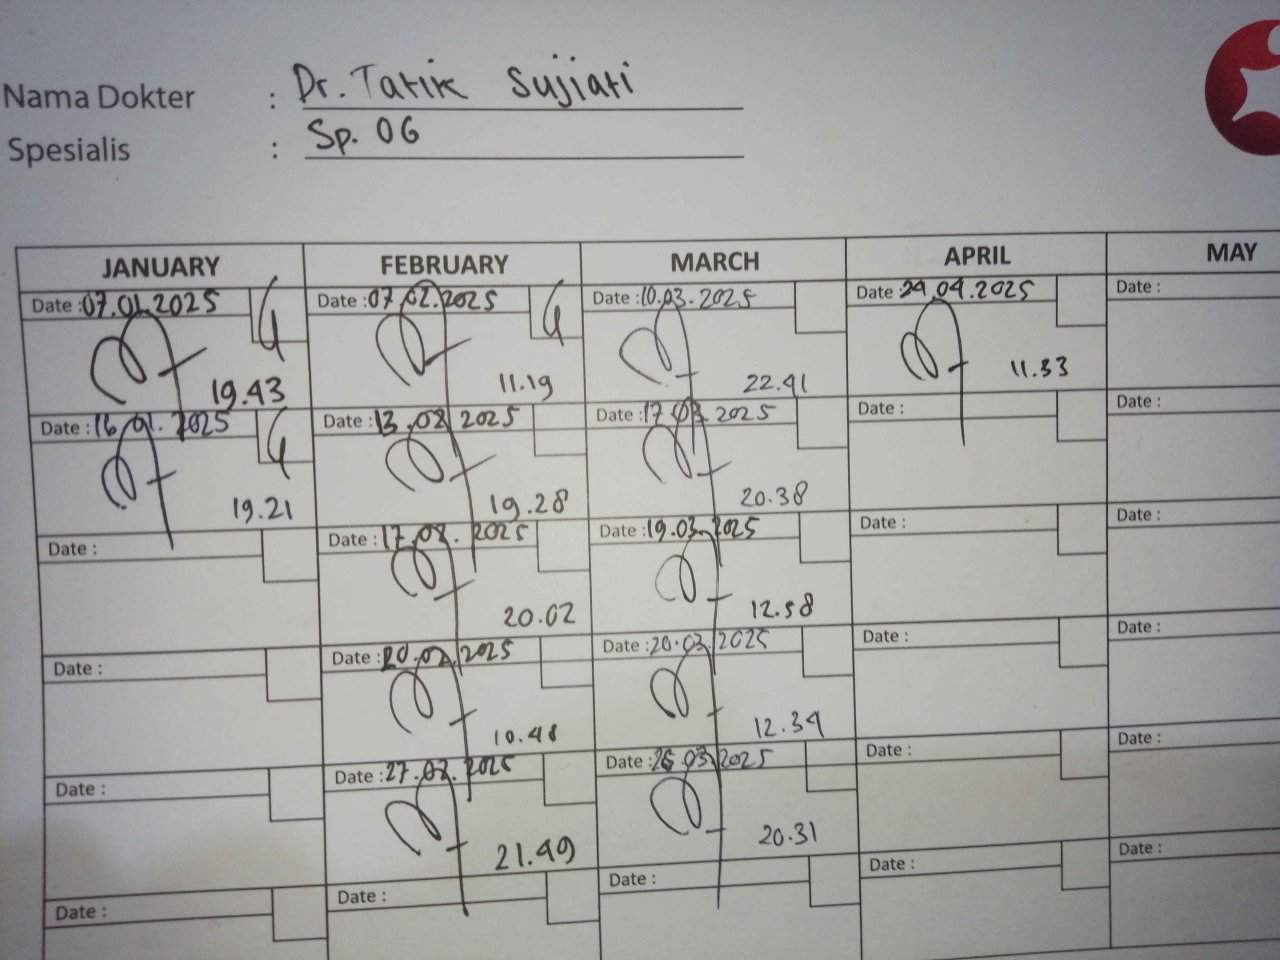 Nama Dokter : Dr. Tatik Sujiati
Spesialis : Sp. OG
JANUARY FEBRUARY MARCH APRIL MAY
Date : 07.01.2025 Date : 07.02.2025 Date : 10.03.2025 Date : 24.04.2025 Date :
19.43 11.19 22.41 11.33
Date : 16.01.2025 Date : 13.02.2025 Date : 17.03.2025 Date : Date :
19.21 19.28 20.38
Date : Date : 17.02.2025 Date : 19.03.2025 Date : Date :
20.02 12.58
Date : Date : 20.02.2025 Date : 20.03.2025 Date : Date :
10.48 12.34
Date : Date : 27.02.2025 Date : 26.03.2025 Date : Date :
21.49 20.31
Date : Date : Date : Date : Date :